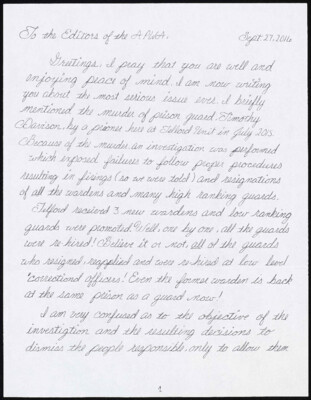 To the Editors of the APWA. Sept. 27, 2016
Greetings. I pray that you are well and
enjoying peace of mind. I am now writing
you about the most serious issue ever. I briefly
mentioned the murder of prison guard, Timothy
Davison, by a prisoner here at Telford Unit in July 2015.
Because of the murder, an investigation was performed
which exposed failures to follow proper procedures
resulting in firings (so we were told) and resignations
of all the wardens and many high ranking guards.
Telford received 3 new wardens and low ranking
guards were promoted. Well, one by one, all the guards
were re-hired! Believe it or not, all of the guards
who resigned, reapplied and were re-hired at low level
"correctional officers! Even the former warden is back
at the same prison as a guard now!
I am very confused as to the objective of the
investigtion and the resulting decisions to
dismiss the people responsible, only to allow them
1